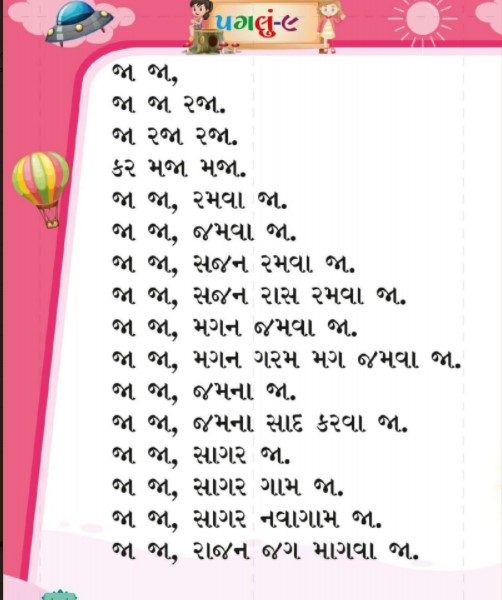 પગલું-૯
જા જા,
જા જા રજા.
જા રજા રજા.
કર મજા મજા.
જા જા, રમવા જા.
જા જા, જમવા જા.
જા જા, સજન રમવા જા.
જા જા, સજન રાસ રમવા જા.
જા જા, મગન જમવા જા.
જા જા, મગન ગરમ મગ જમવા જા.
જા જા, જમના જા.
જા જા, જમના સાદ કરવા જા.
જા જા, સાગર જા.
જા જા, સાગર ગામ જા.
જા જા, સાગર નવાગામ જા.
જા જા, રાજન જગ માગવા જા.